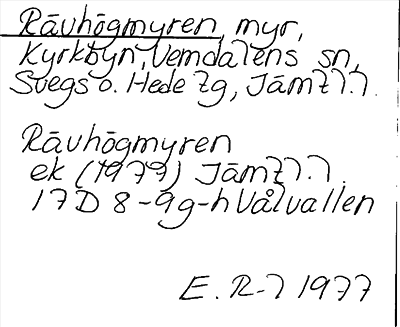 Rävhögmyren, myr,
Kyrkbyn, Vemdalens sn,
Svegs o. Hede tg, Jämtl. l.
Rävhögmyren
ek (1979) Jämtl. l.
17D 8-9g-h Vålvallen
E. R-l 1977